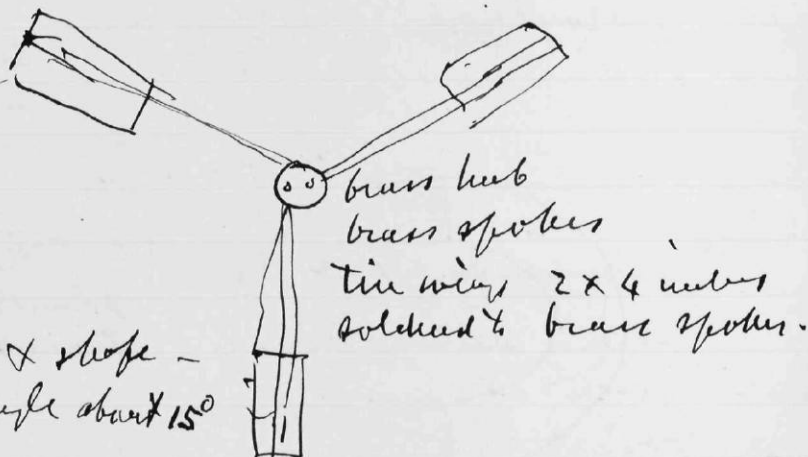 brass hub
brass spokes
tin wings 2 x 4 inches
soldered to brass spokes.
& shape -
gle about 15°